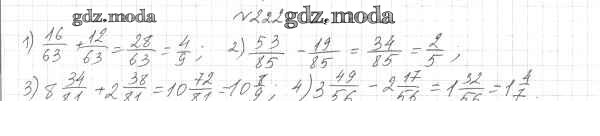 gdz.moda №222 gdz.moda
1) 16/63 + 12/63 = 28/63 = 4/9; 2) 53/85 - 19/85 = 34/85 = 2/5,
3) 8 34/81 + 2 38/81 = 10 72/81 = 10 8/9; 4) 3 49/56 - 2 17/56 = 1 32/56 = 1 4/7.